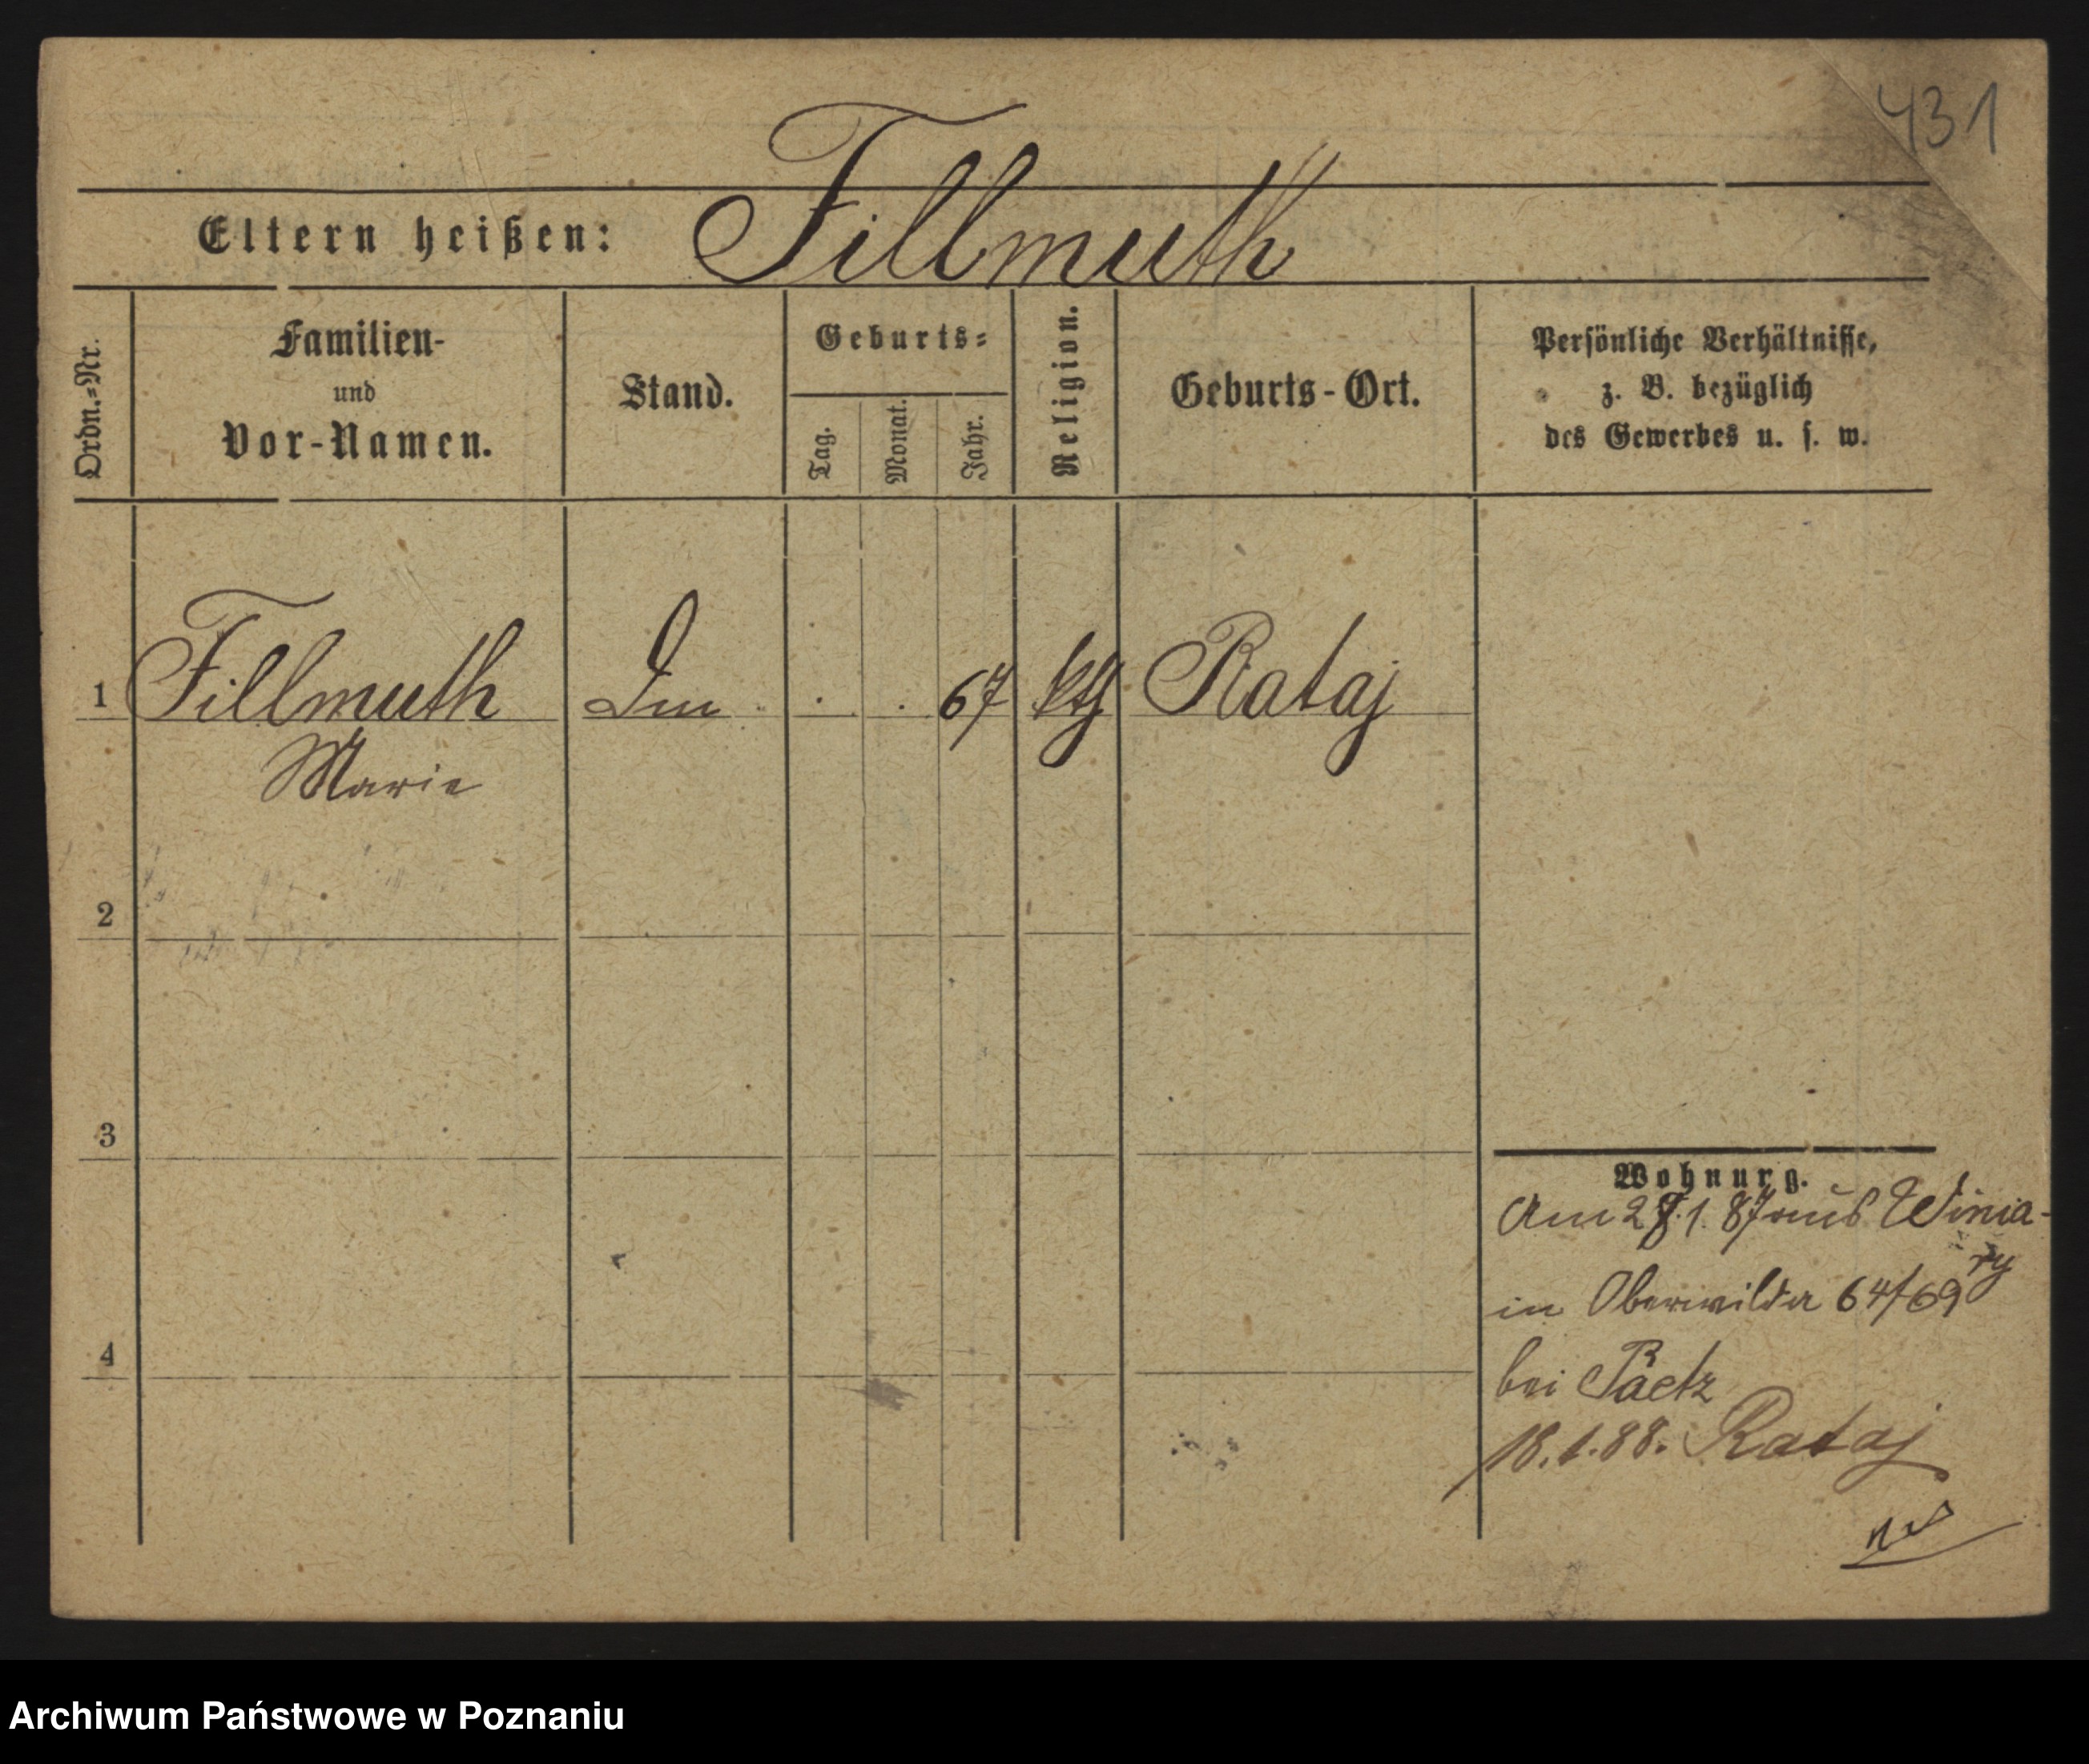 431
Eltern heißen: Fillmuth
Ordn.=Nr.
Familien-
und
Vor-Namen.
Stand.
Geburts=
Tag.
Monat.
Jahr.
Religion.
Geburts-Ort.
Persönliche Verhältnisse,
z. B. bezüglich
des Gewerbes u. s. w.
1 Fillmuth 67 kth Rataj
Marie
2
3
4
Wohnung.
Am 28.1.87 aus Winia-
ry
in Oberwilda 64/69
bei Paetz
18.1.88. Rataj
Archiwum Państwowe w Poznaniu